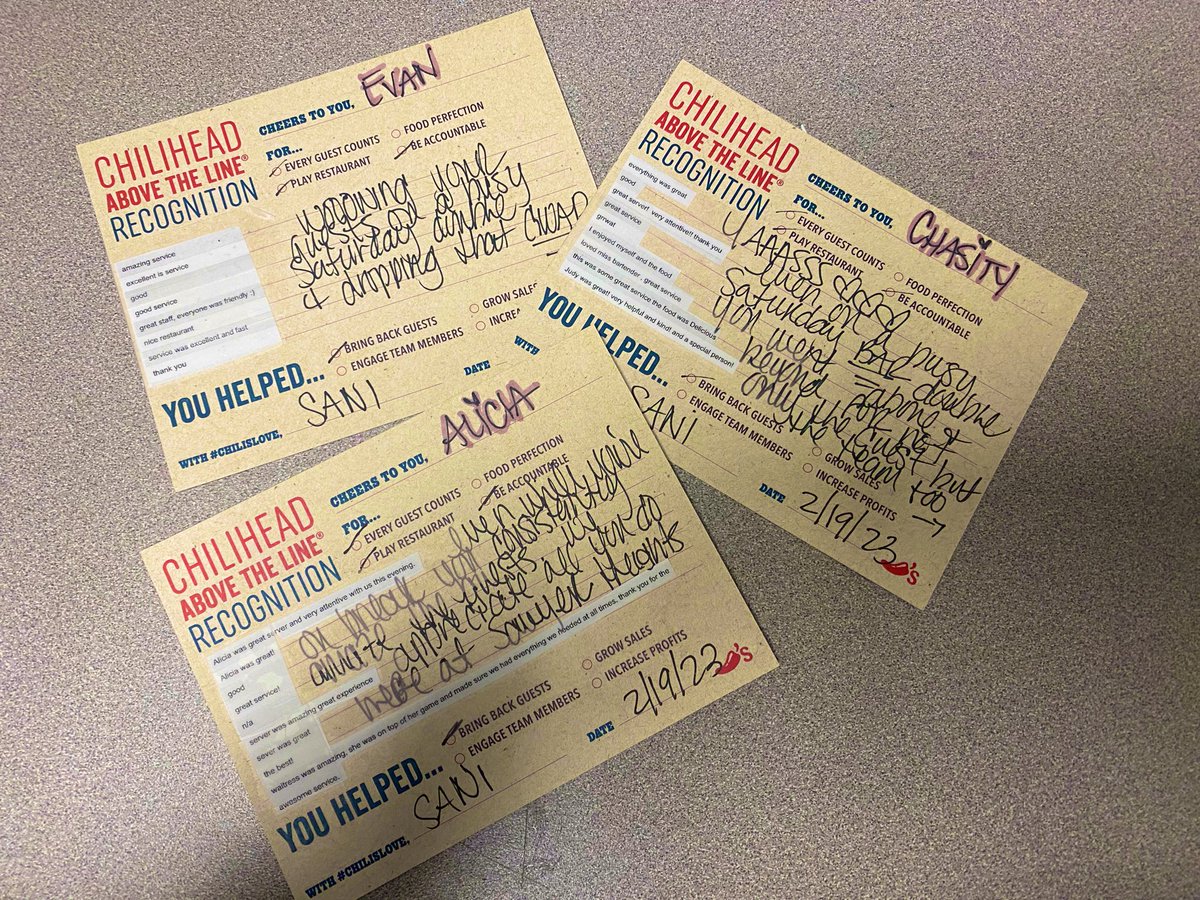 CHILIHEAD
ABOVE THE LINE®
RECOGNITION
CHEERS TO YOU, EVAN
FOR...
EVERY GUEST COUNTS
PLAY RESTAURANT
FOOD PERFECTION
BE ACCOUNTABLE
your
guests on a busy
Saturday
& dropping that
amazing service
excellent is service
good
good service
great staff, everyone was friendly :)
nice restaurant
service was excellent and fast
thank you
YOU HELPED...
BRING BACK GUESTS
ENGAGE TEAM MEMBERS
GROW SALES
INCREASE
WITH #CHILISLOVE, SANI
DATE
WITH
CHILIHEAD
ABOVE THE LINE®
RECOGNITION
CHEERS TO YOU, CHASITY
FOR...
EVERY GUEST COUNTS
PLAY RESTAURANT
FOOD PERFECTION
BE ACCOUNTABLE
even on a busy
Saturday BAR double
you went above &
beyond for not
only the Guest but
the team too →
everything was great
good
great server! very attentive!! thank you
great service
grrwat
I enjoyed myself and the food
loved miss bartender, great service
this was some great service the food was Delicious
Judy was great! very helpful and kind! and a special person!
YOU HELPED...
BRING BACK GUESTS
ENGAGE TEAM MEMBERS
GROW SALES
INCREASE PROFITS
SANI
DATE 2/19/23
's
CHILIHEAD
ABOVE THE LINE®
RECOGNITION
CHEERS TO YOU, ALICIA
FOR...
EVERY GUEST COUNTS
PLAY RESTAURANT
FOOD PERFECTION
BE ACCOUNTABLE
the guests
all you do
here at
Alicia was great server and very attentive with us this evening.
Alicia was great!
good
great service!
n/a
server was amazing great experience
sever was great
the best!
waitress was amazing, she was on top of her game and made sure we had everything we needed at all times, thank you for the
awesome service.
YOU HELPED...
BRING BACK GUESTS
ENGAGE TEAM MEMBERS
GROW SALES
INCREASE PROFITS
WITH #CHILISLOVE, SANI
DATE 2/19/23
's